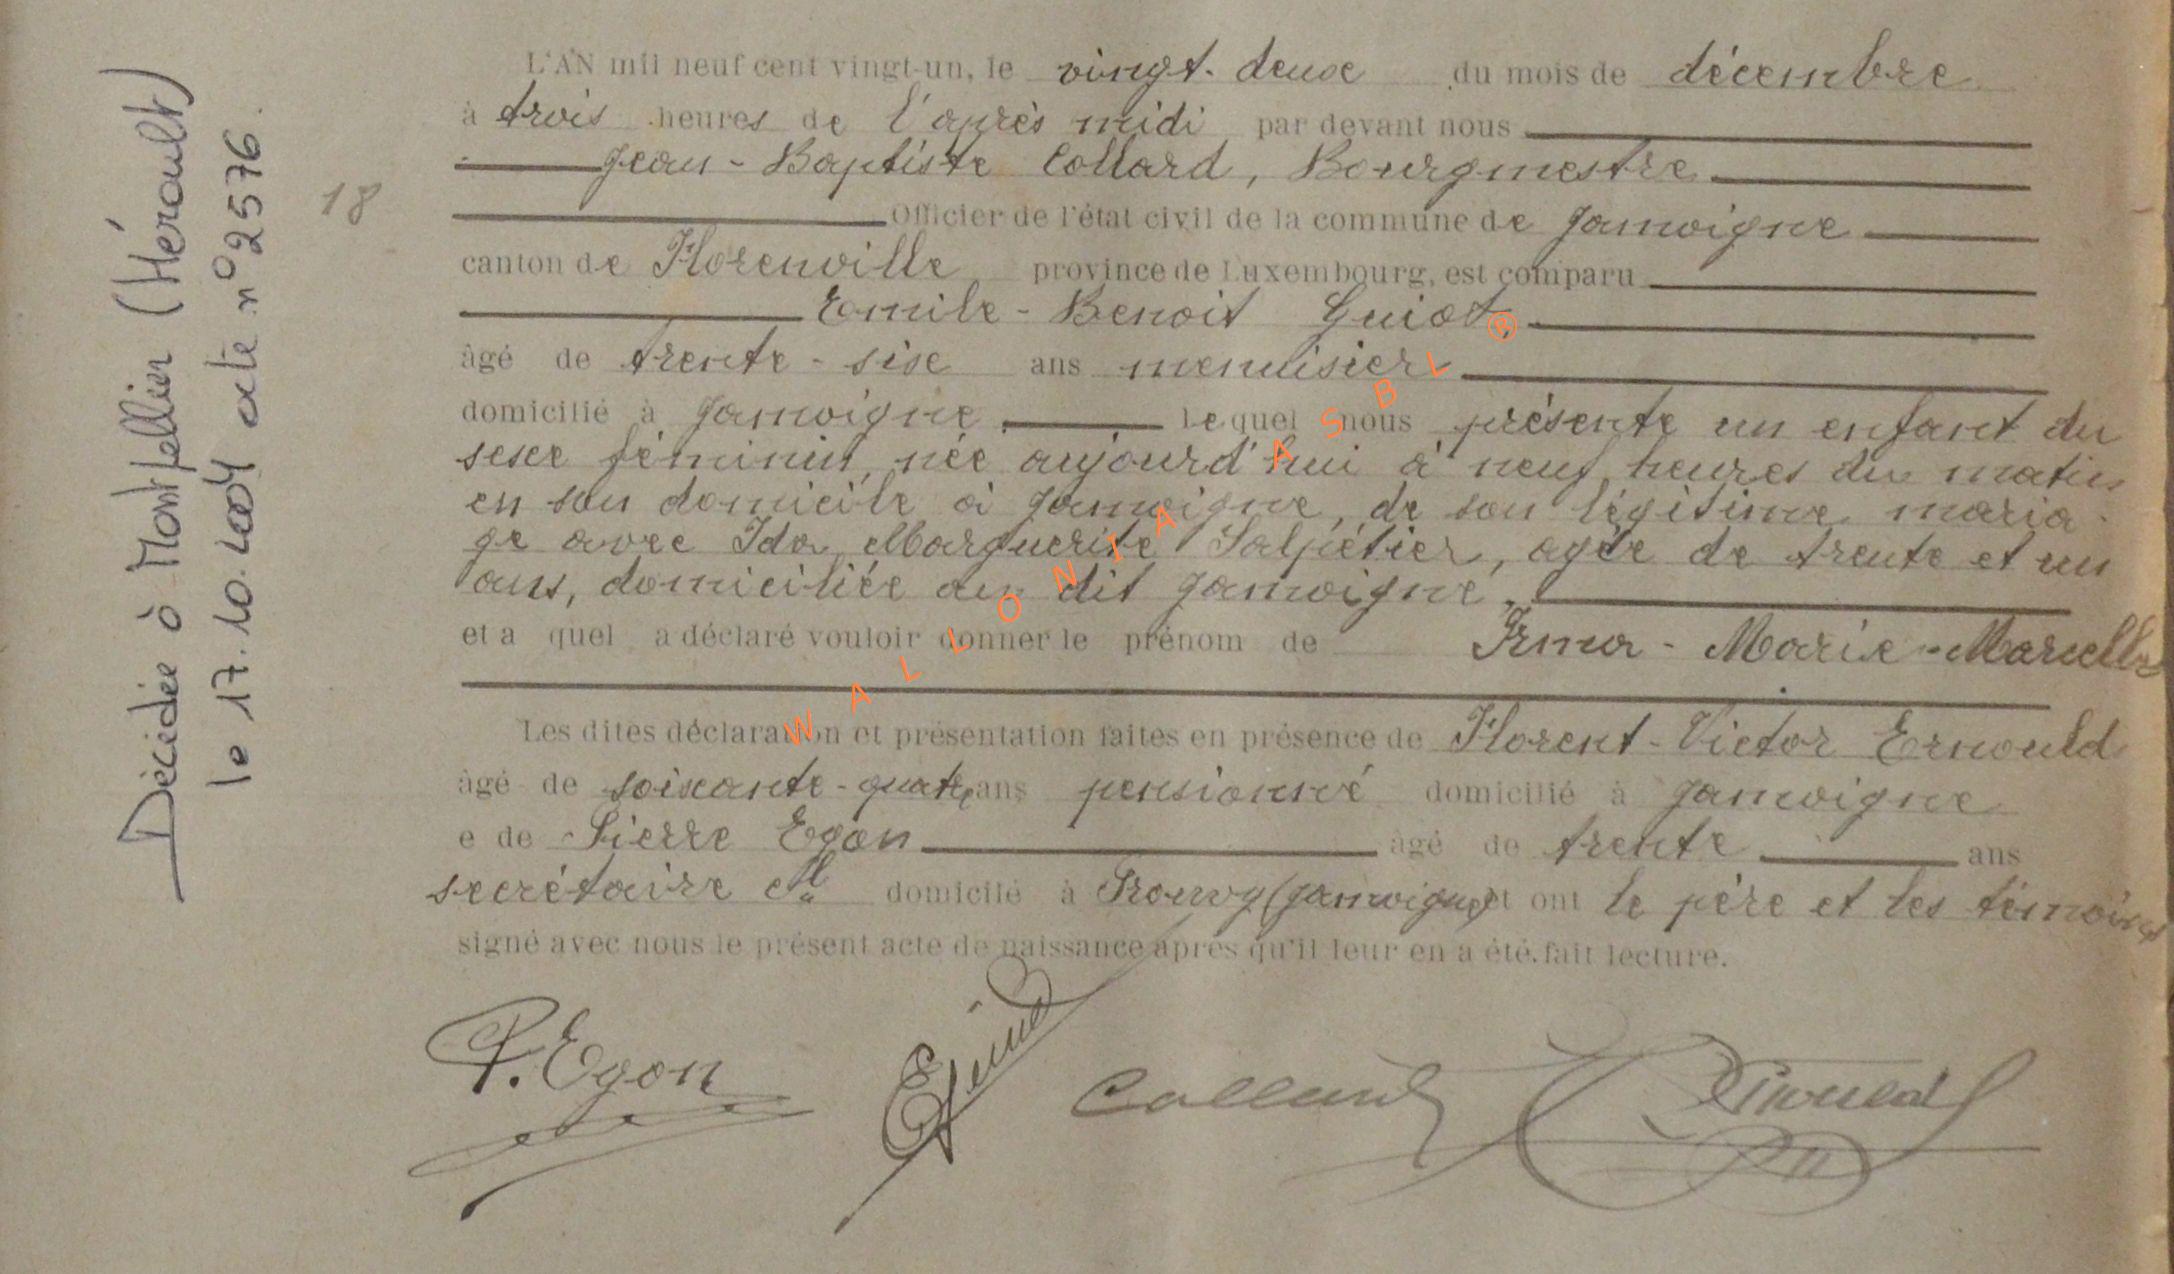 Décédée à Montpellier (Hérault)
le 17.10.2004 acte n° 2576.
18
L'AN mil neuf cent vingt-un, le vingt-deux du mois de décembre
à trois heures de l'après midi par devant nous
Jean-Baptiste Collard, Bourgmestre
Officier de l'état civil de la commune de Jamoigne
canton de Florenville province de Luxembourg, est comparu
Emile-Benoit Guiot
âgé de trente-six ans menuisier
domicilié à Jamoigne lequel nous présente un enfant du
sexe féminin, née aujourd'hui à neuf heures du matin
en son domicile à Jamoigne, de son légitime maria-
ge avec Ida Marguerite Salpétier, agée de trente et un
ans, domiciliée au dit Jamoigne,
et a quel a déclaré vouloir donner le prénom de Irma-Marie-Marcelle
Les dites déclaration et présentation faites en présence de Florent-Victor Ernould
âgé de soixante-quatre ans pensionné domicilié à Jamoigne
e de Pierre Egon âgé de trente ans
secrétaire cl domicilé à Prouvy (Jamoigne) et ont le père et les témoins
signé avec nous le présent acte de naissance après qu'il leur en a été fait lecture.
P. Egon Collard Ernould
WALLONIA ASBL ®